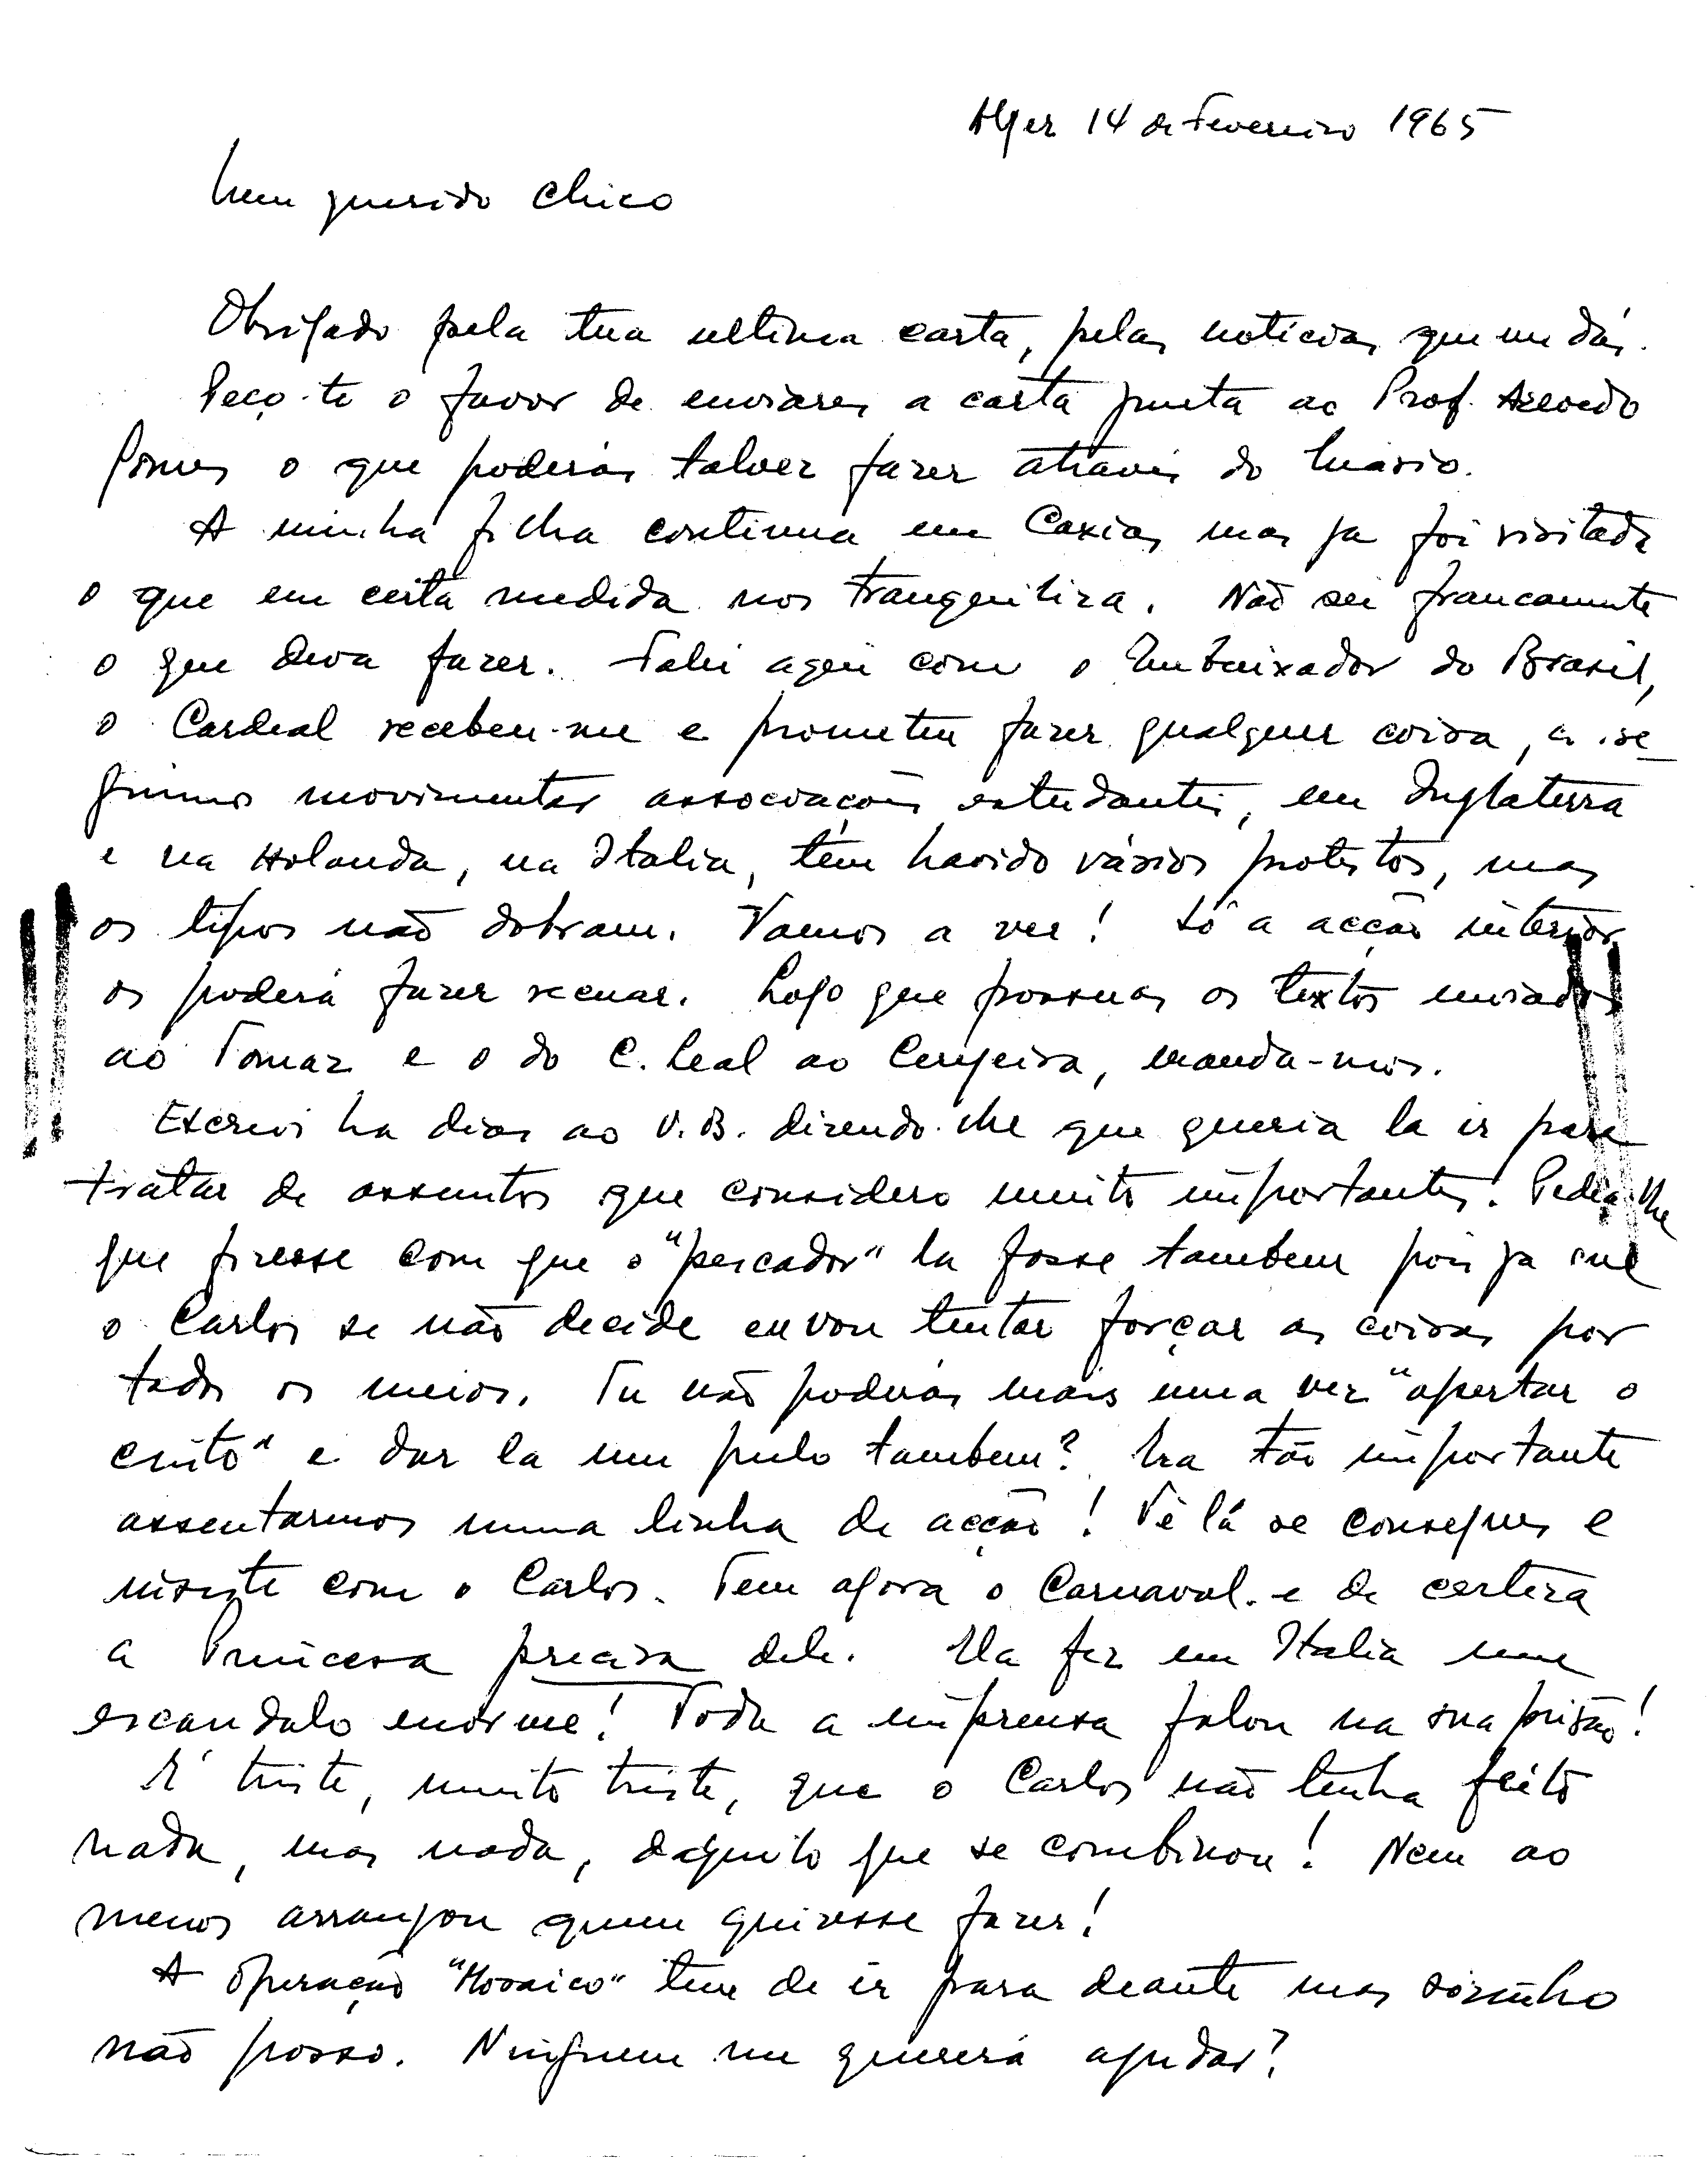 Alger 14 de Fevereiro 1965
Meu querido Chico
Obrigado pela tua ultima carta, pelas noticias que me dás.
Peço-te o favor de enviares a carta junta ao Prof. Azevedo
Gomes o que poderás talvez fazer através do Mário.
A minha filha continua em Caxias mas ja foi visitada
o que em certa medida nos tranquiliza. Não sei francamente
o que deva fazer. Falei aqui com o Embaixador do Brasil,
o Cardeal recebeu-me e prometeu fazer qualquer coisa, a se
guimos movimentar associações estudantis, em Inglaterra
e na Holanda, na Italia, têm havido vários protestos, mas
os tipos não dobram. Vamos a ver! Só a acção interior
os poderá fazer recuar. Logo que possuas os textos enviados
ao Tomaz e o do C. Leal ao Cerejeira, manda-nos.
Escrevi ha dias ao V.B. dizendo-lhe que queria la ir para
tratar de assuntos que considero muito importantes. Pedia-lhe
que fizesse com que o "pescador" la fosse tambem pois ja que
o Carlos se não decide eu vou tentar forçar as coisas por
todos os meios. Tu não poderás mais uma vez "apertar o
cinto" e dar la um pulo tambem? Era tão importante
assentarmos numa linha de acção! Vê lá se consegues e
insiste com o Carlos. Tem agora o Carnaval e de certeza
a Princesa precisa dele. Ela fez em Italia um
escandalo enorme! Toda a imprensa falou na sua prisão!
É triste, muito triste, que o Carlos não tenha feito
nada, mas nada, daquilo que se combinou! Nem ao
menos arranjou quem quizesse fazer!
A operação "Mosaico" tem de ir para deante mas sozinho
não posso. Ninguem me quererá ajudar?